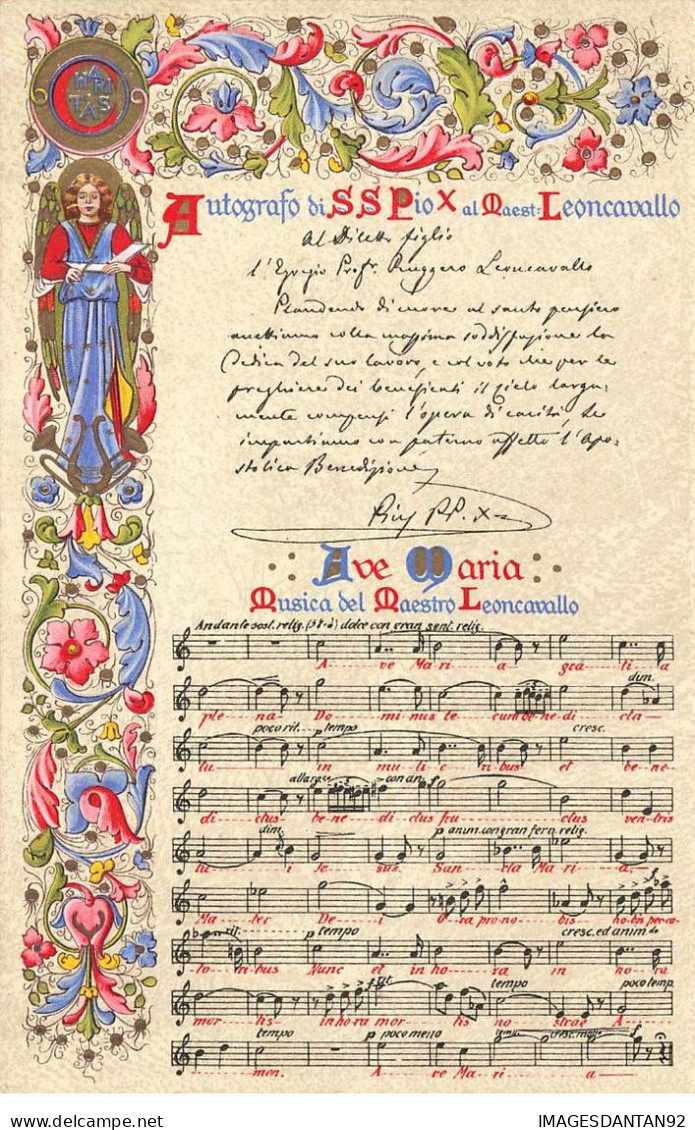 CHARITAS
Autografo di SS Pio X al Maest: Leoncavallo
Al Diletto figlio
l'Egregio Prof. Ruggero Leoncavallo
Plaudendo di cuore al santo pensiero
accettiamo colla massima soddisfazione la
Dedica del suo lavoro, e col voto che per le
preghiere dei beneficati il Cielo larga-
mente compensi l'opera di carità, Le
impartiamo con paterno affetto l'Apo-
stolica Benedizione
Pius PP. X
Ave Maria
Musica del Maestro Leoncavallo
Andante sost. relig. dolce con gran sent. relig.
A---- ve Ma---ri---- a gra--ti--a
dim.
ple---na Do----mi--nus te---- cum be-ne-di--cta--
poco rit. p tempo cresc.
tu---- in mu-li-e---ri-bus---- et be--ne--
allarg. con an. f
di--ctus be--ne----di--ctus fru----ctus ven-tris
dim. p anim. con gran fera relig.
tu---- i Je---- sus. San--cta Ma-ri---- a,
f
Ma--ter De---- i O-ra pro-no---- bis
rit. p tempo cresc. ed anim do
to---ri-bus Nunc et in ho---- ra in ho-ra
tempo poco
mor---tis in ho-ra mor---- tis no---- strae A--
tempo p poco meno f
men. A---- ve Ma---- ri---- a----
IMAGESDANTAN92